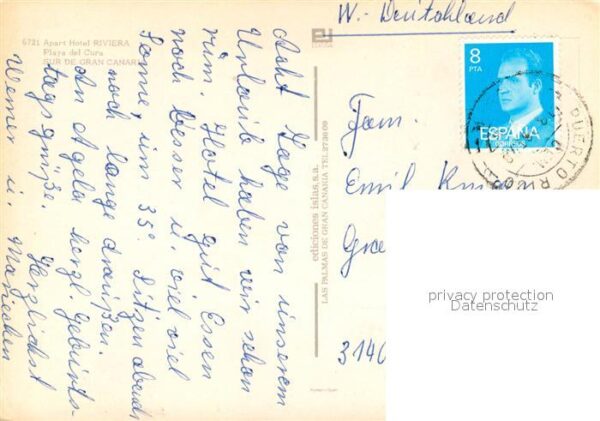 6721 Apart Hotel RIVIERA
Playa del Cura
SUR DE GRAN CANARIA
Acht Tage von unserem
Urlaub haben wir schon
rüm. Hotel gut Essen
noch besser u. viel viel
Sonne, um 35°. Sitzen abends
noch lange draußen.
An Agela herzl. Geburts-
tagsgrüße. Herzlichst
Werner u. Mariechen
ediciones islas, s.a.
LAS PALMAS DE GRAN CANARIA TEL. 273909
W.-Deutschland
8
PTA
ESPAÑA
CORREOS
PUERTO RICO
Fam.
Emil
3140
privacy protection
Datenschutz